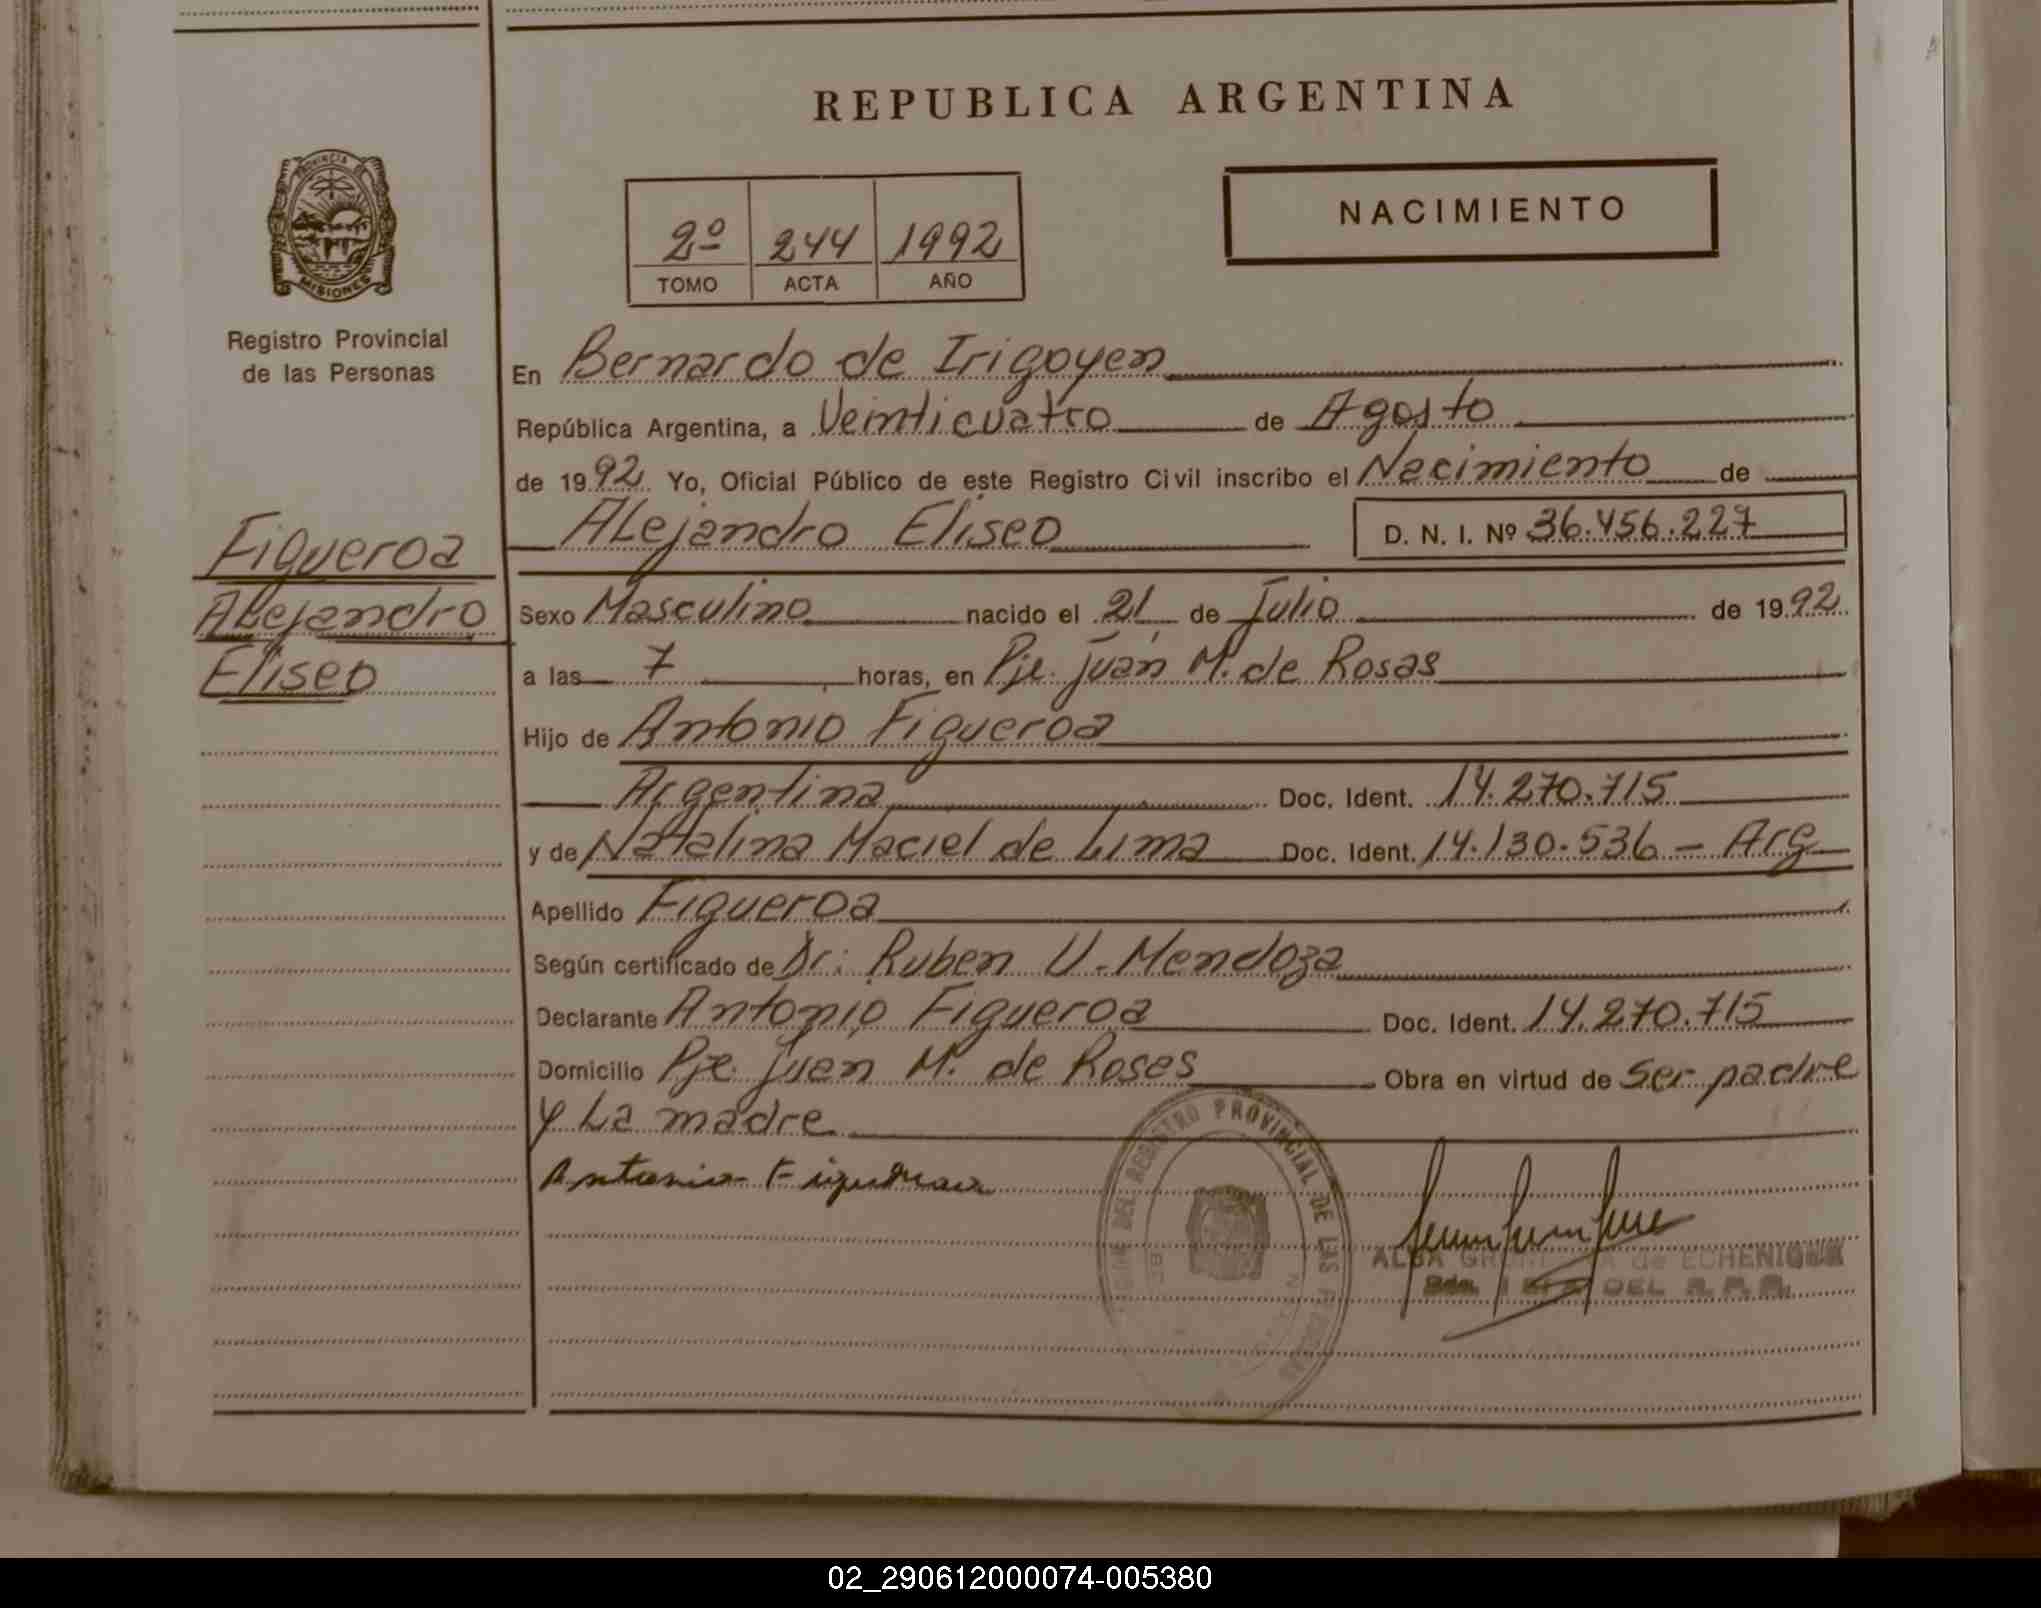 REPUBLICA ARGENTINA
PROVINCIA
MISIONES
Registro Provincial
de las Personas
2º 244 1992
TOMO ACTA AÑO
NACIMIENTO
En Bernardo de Irigoyen
República Argentina, a Veinticuatro de Agosto
de 1992 Yo, Oficial Público de este Registro Civil inscribo el Nacimiento de
Alejandro Eliseo D. N. I. Nº 36.456.227
Figueroa
Alejandro
Eliseo
Sexo Masculino nacido el 21 de Julio de 1992
a las 7 horas, en Pje. Juan M. de Rosas
Hijo de Antonio Figueroa
Argentina Doc. Ident. 14.270.715
y de Natalina Maciel de Lima Doc. Ident. 14.130.536 - Arg
Apellido Figueroa
Según certificado de Dr: Ruben U. Mendoza
Declarante Antonio Figueroa Doc. Ident. 14.270.715
Domicilio Pje. Juan M. de Rosas Obra en virtud de Ser padre
y La madre
Antonio Figueroa
DEL REGISTRO PROVINCIAL DE LAS
ALBA de ECHENIQUE
DEL R. P. P.
02_290612000074-005380